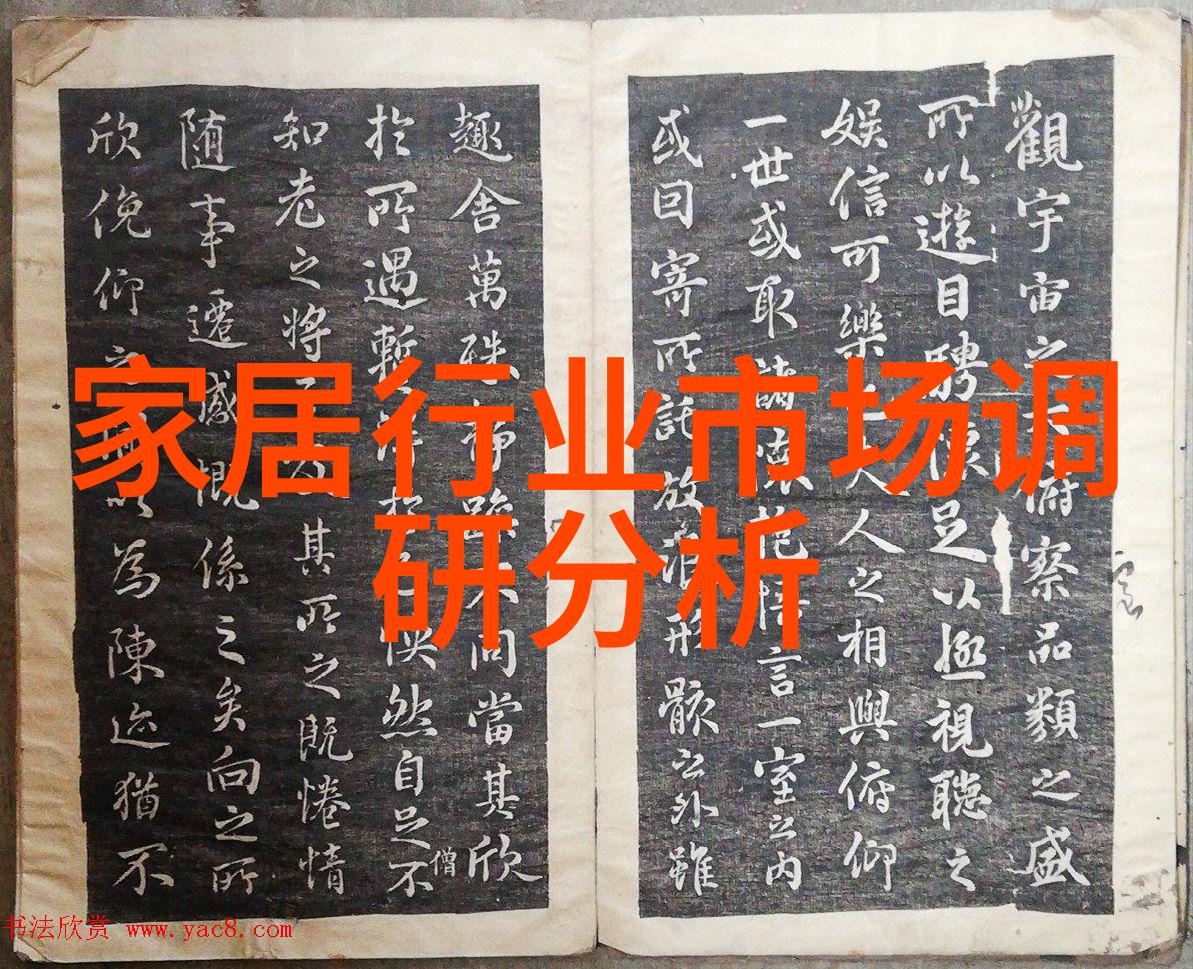 家居行业市场调
研分析
觀宇宙之大俯察品類之盛
所以遊目騁懷足以極視聽之
娱信可樂也夫人之相與俯仰
一世或取諸懷抱悟言一室之内
或因寄所託放浪形骸之外雖
趣舍萬殊静躁不同當其欣
於所遇暫得於己快然自足不
僧
知老之將至及其所之既惓情
随事遷感慨係之矣向之所
欣俛仰之間以為陳迹猶不
书法欣赏 www.yac8.com